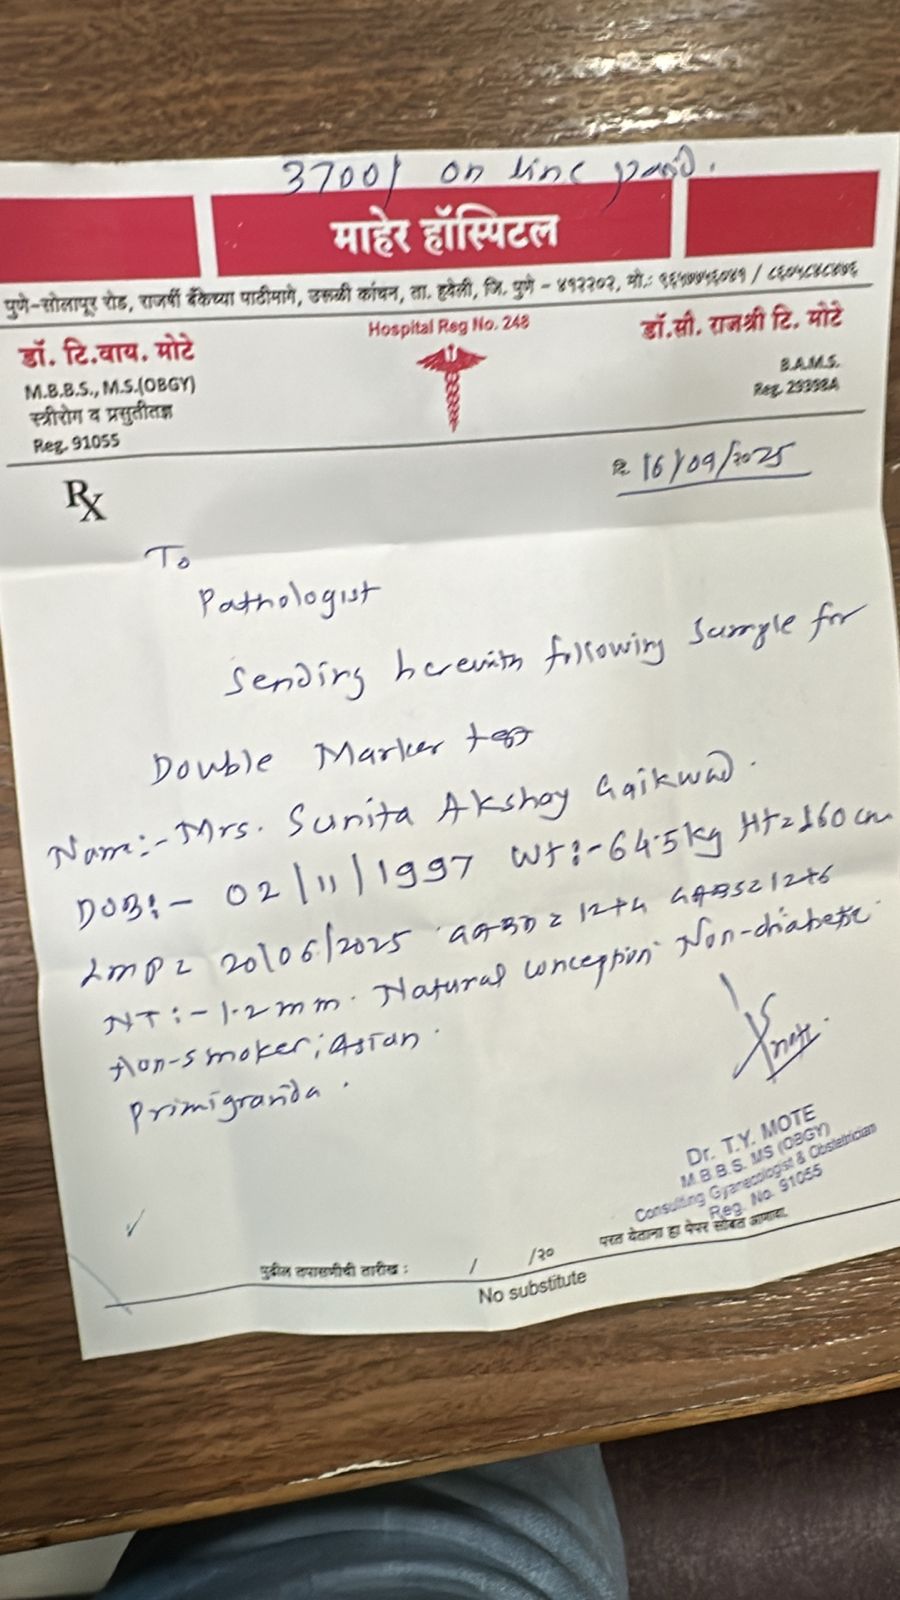 3700/ on line paid.
माहेर हॉस्पिटल
पुणे-सोलापूर रोड, राजर्षी बँकेच्या पाठीमागे, उरूळी कांचन, ता. हवेली, जि. पुणे - ४१२२०२, मो.:
Hospital Reg No. 248
डॉ. टि.वाय. मोटे
M.B.B.S., M.S.(OBGY)
स्त्रीरोग व प्रसुतीतज्ञ
Reg. 91055
डॉ.सौ. राजश्री टि. मोटे
B.A.M.S.
Reg. 29398A
दि. 16/09/2025
Rx
To
Pathologist
Sending herewith following sample for
Double Marker test
Name:- Mrs. Sunita Akshay Gaikwad.
DOB:- 02/11/1997 Wt:- 64.5kg Ht=160 cm
LMP= 20/06/2025 GABD = 12+4 GABS=12+6
NT:- 1.2mm. Natural conception Non-diabetic.
Non-smoker, Asian.
Primigravida.
Dr. T.Y. MOTE
M.B.B.S. MS (OBGY)
Consulting Gyanecologist & Obstetrician
Reg. No. 91055
परत येताना हा पेपर सोबत आणावा.
पुढील तपासणीची तारीख : / /२०
No substitute